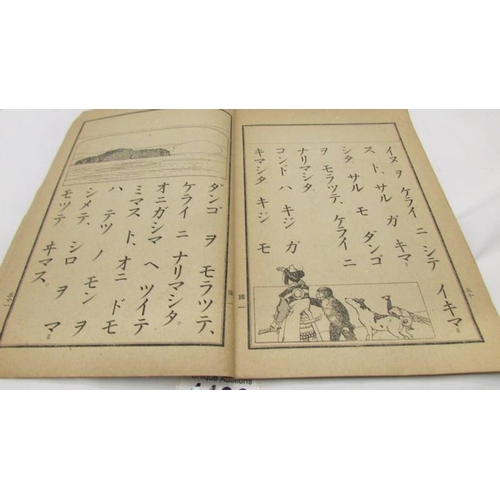 イヌ ヲ ケライ ニ シテ イキマ
ス ト、サル ガ キマ
シタ。サル モ ダンゴ
ヲ モラツテ、ケライ ニ
ナリマシタ。
コンド ハ キジ ガ
キマシタ。キジ モ
ダンゴ ヲ モラツテ、
ケライ ニ ナリマシタ。
オニガシマ ヘ ツイテ
ミマス ト、オニ ドモ
ハ テツ ノ モン ヲ
シメテ、シロ ヲ マ
モツテ ヰマス。
Auctions